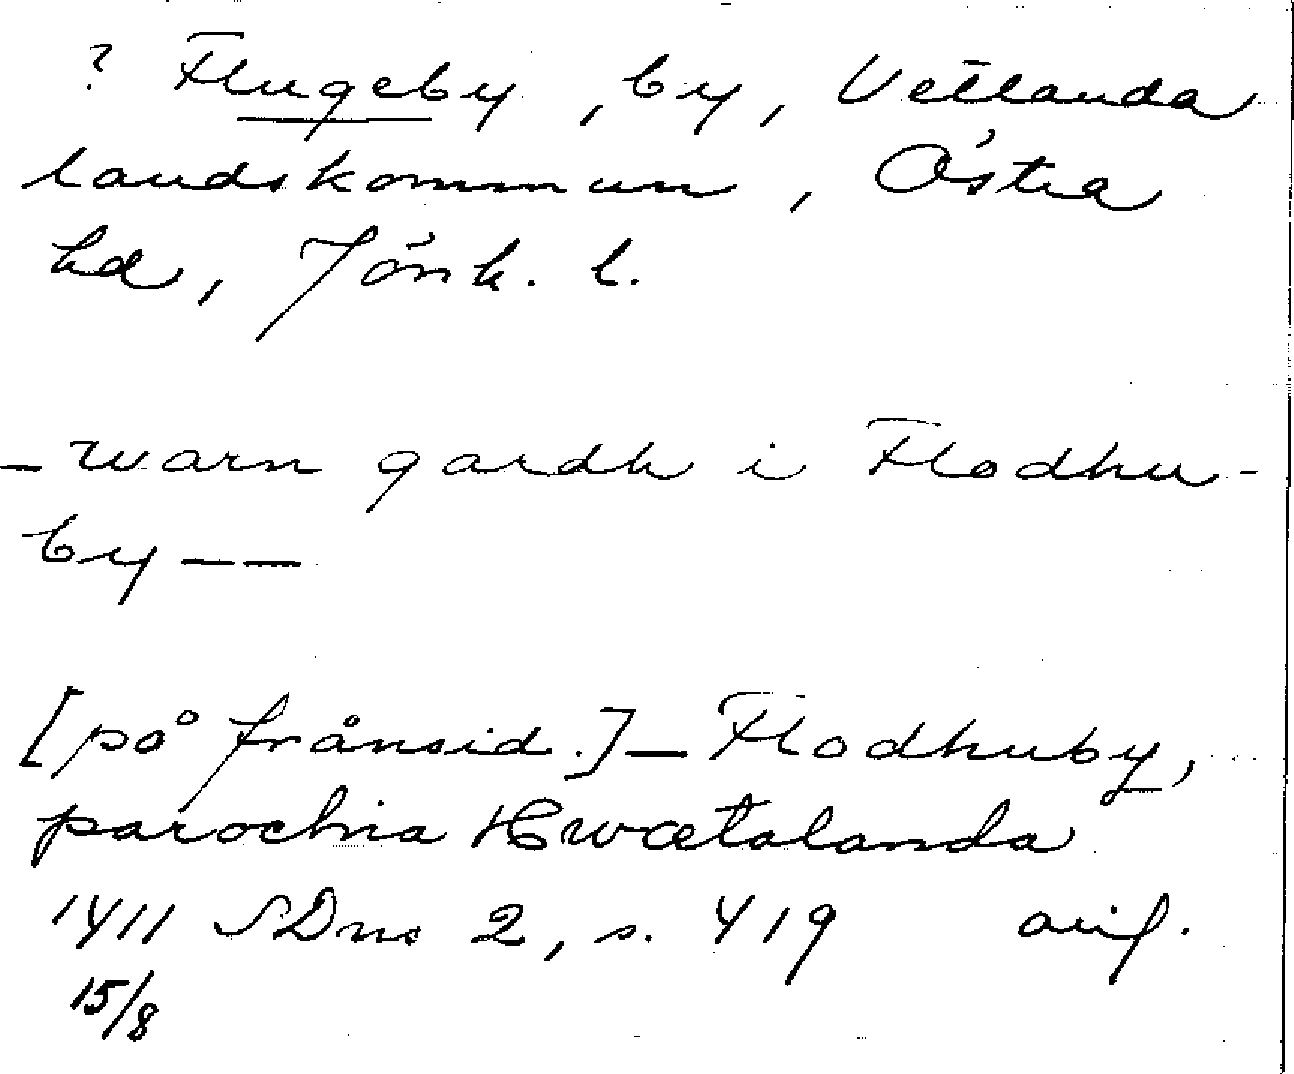 ? Flugeby, by, Vetlanda
landskommun, Östra
hd, Jönk. l.
– warn gardh i Flodhu-
by – –
[på frånsid.] – Flodhuby,
parochia Hwætalanda
1411 SDns 2, s. 419 avif.
15/8